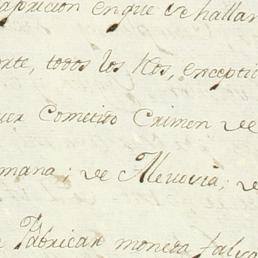 apricion en que se hallan
rte, todos los Ros, excepti
Cometido Crimen de
mana; de Alevovia; de
Fabricar moneda falsa